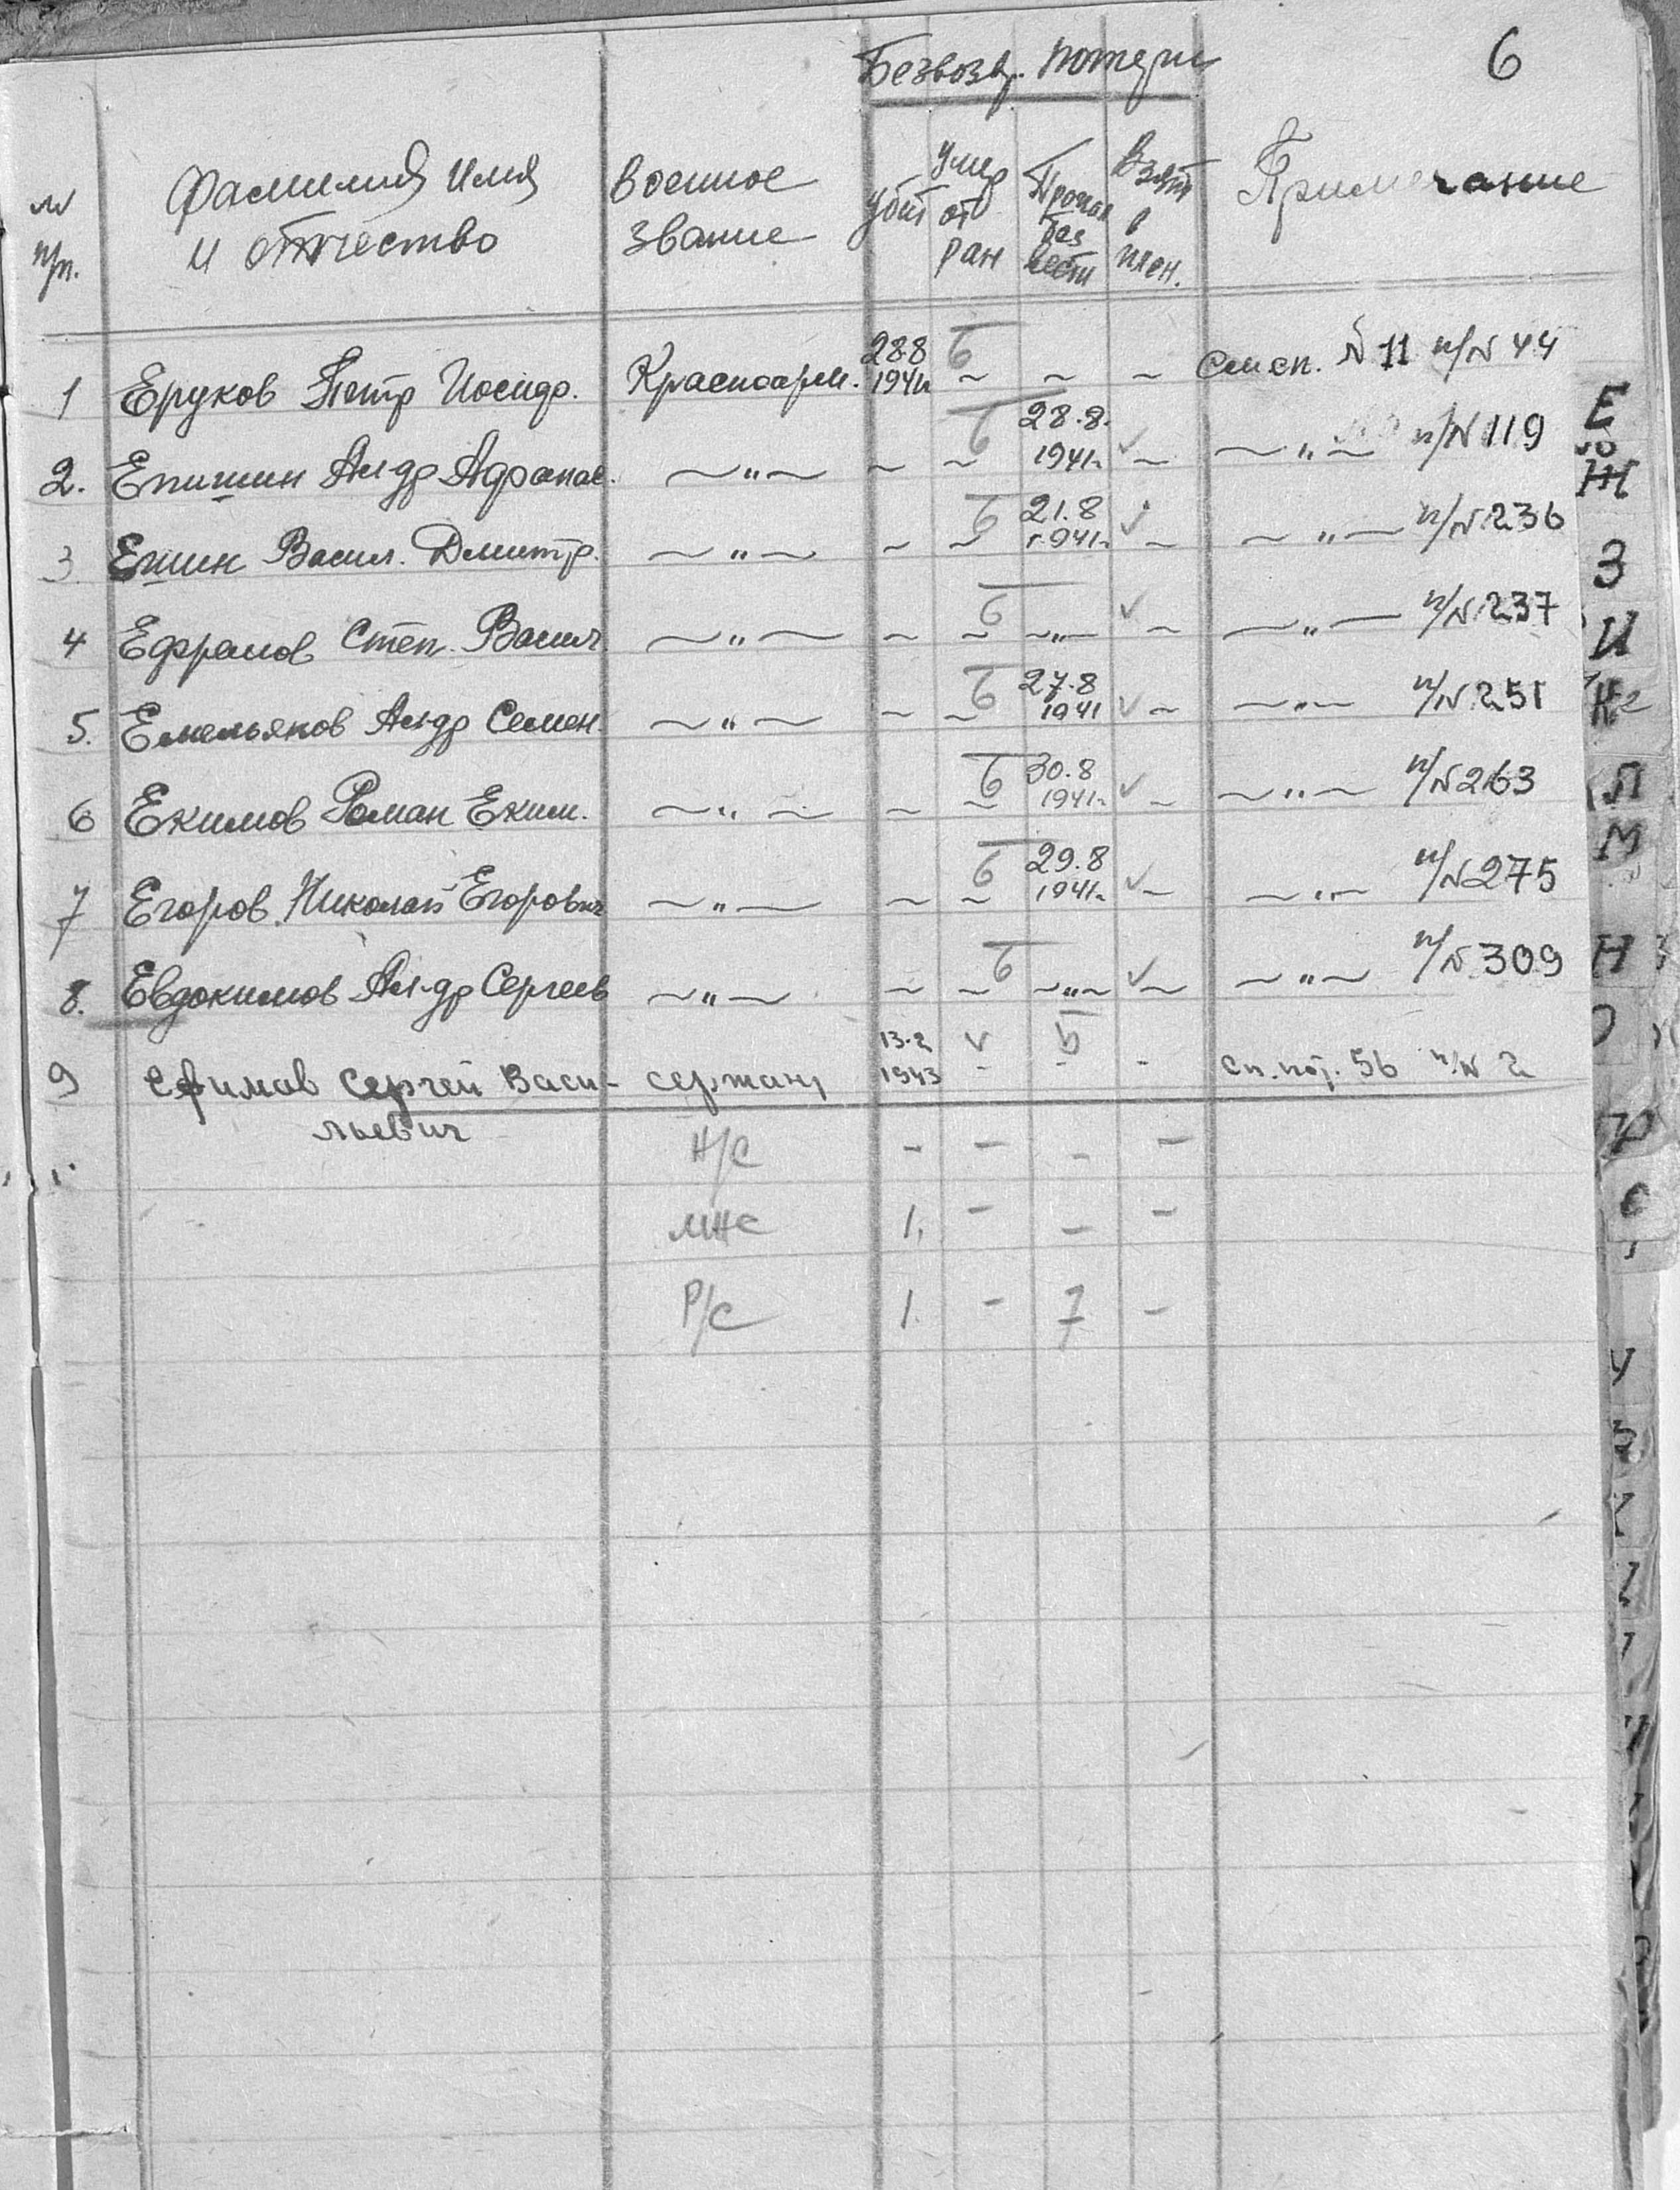 6
Безвозвр. потери
№ п/п. Фамилия Имя и отчество Военное звание убит Умер от ран Пропал без вести Взят в плен. Примечание
1 Еруков Петр Иосифо. Красноарм. 28.8 1941г. б ~ ~ ~ См сп. № 11 п/№ 44
2. Епишин Ал-др Афанас. ~"~ ~ ~ б 28.8. 1941г. ✓ ~ ~"~ п/№ 119
3 Ешин Васил. Дмитр. ~"~ ~ ~ б 21.8 1941г. ✓ ~ ~"~ п/№ 236
4 Ефремов Степ. Васил ~"~ ~ ~ б ~"~ ✓ ~ ~"~ п/№ 237
5. Емельянов Ал-др Семен. ~"~ ~ ~ б 27.8 1941 ✓ ~ ~"~ п/№ 251
6 Екимов Роман Еким. ~"~ ~ ~ б 30.8 1941г. ✓ ~ ~"~ п/№ 263
7 Егоров Николай Егорович ~"~ ~ ~ б 29.8 1941г. ✓ ~ ~"~ п/№ 275
8. Евдокимов Ал-др Сергеев ~"~ ~ ~ б ~"~ ✓ ~ ~"~ п/№ 309
9 Ефимов Сергей Васи- сержант 13.2 1943 ✓ - б - - Сп. пот. 56 п/№ 2
льевич
Н/С - - - -
МНС 1. - - -
Р/С 1. - 7 -
Е
Ж
З
И
К
Л
М
Н
О
Р
С
У